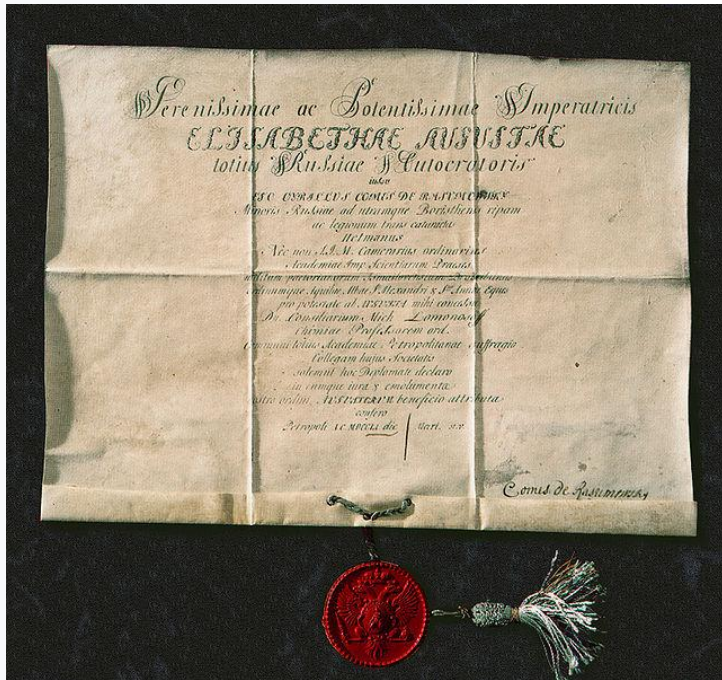 Serenissimae ac Potentissimae Imperatricis
ELISABETHAE AUGUSTAE
totius Russiae Autocratoris
iussu
EGO CYRILLUS COMES DE RASUMOWSKY
Minoris Russiae ad utramque Boristhenis ripam
ac legionum trans cataracta
Hetmanus
Nec non S. I. M. Camerarius ordinarius
Academiae Imp. Scientiarum Praeses
Ordinumque Aquilae Albae S. Alexandri & S. Annae Eques
pro potestate ab AUGUSTA mihi concessa
Dn. Consiliarium Mich. Lomonosoff
Chimiae Professorem ord.
Communi totius Academiae Petropolitanae suffragio
Collegam hujus Societatis
solemni hoc Diplomate declaro
iura & emolumenta
ordini AUGUSTARUM beneficio attributa
confero
Petropoli die
Comes de Rasumowsky